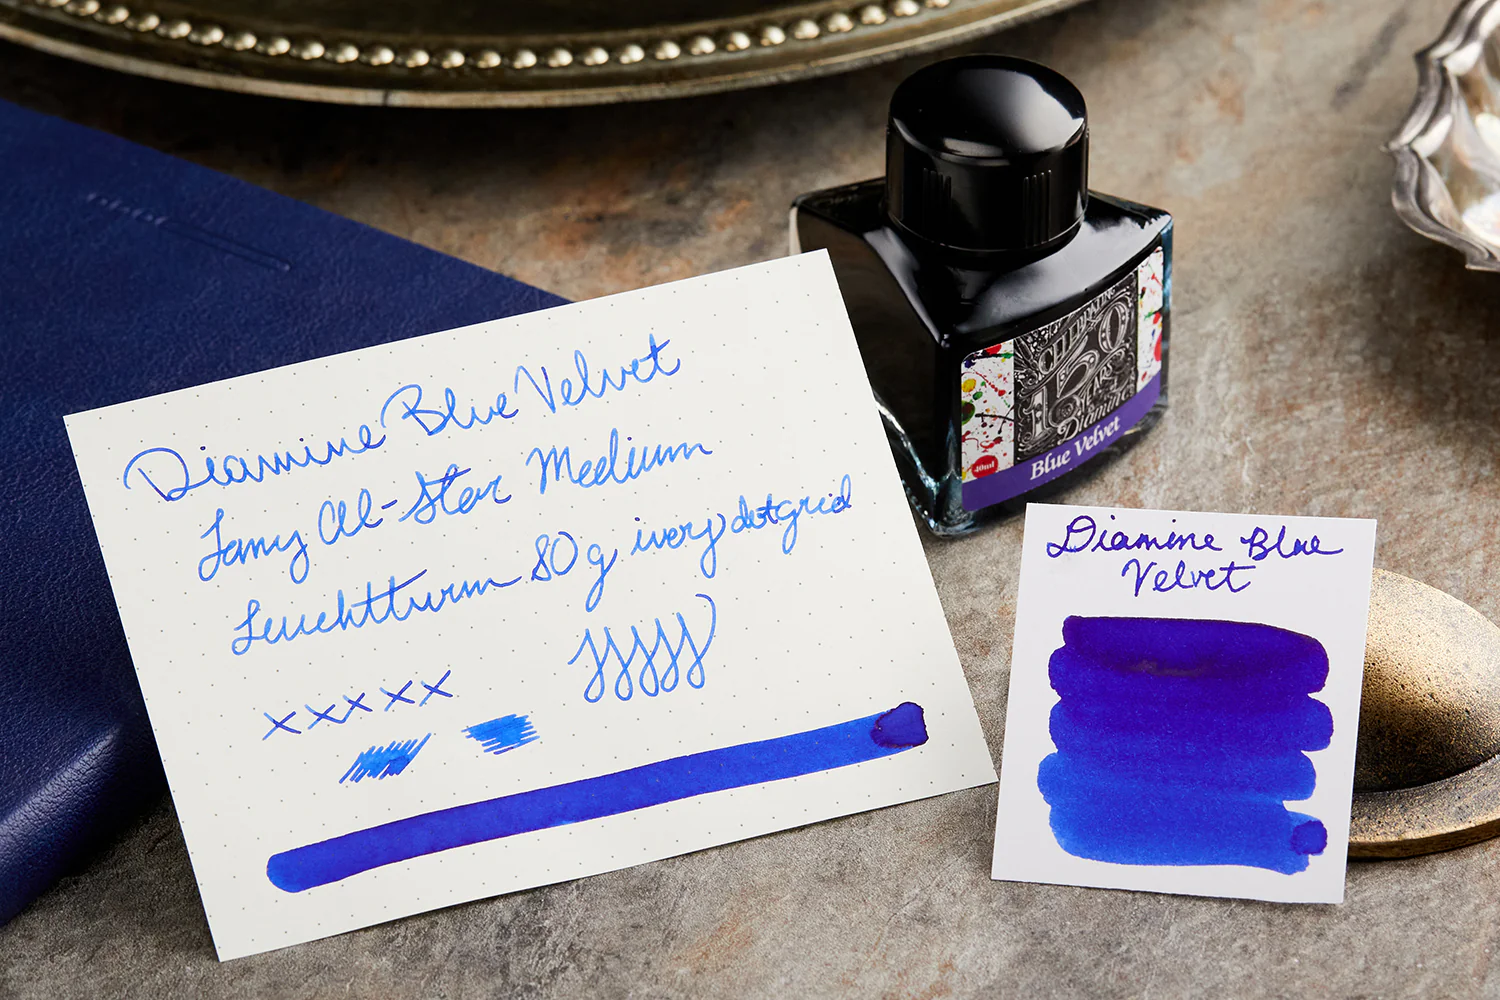 Diamine Blue Velvet
Lamy Al-Star Medium
Leuchtturm 80g ivory dotgrid
xxxxx
CELEBRATING
150
YEARS
Diamine
40ml
Blue Velvet
Diamine Blue
Velvet